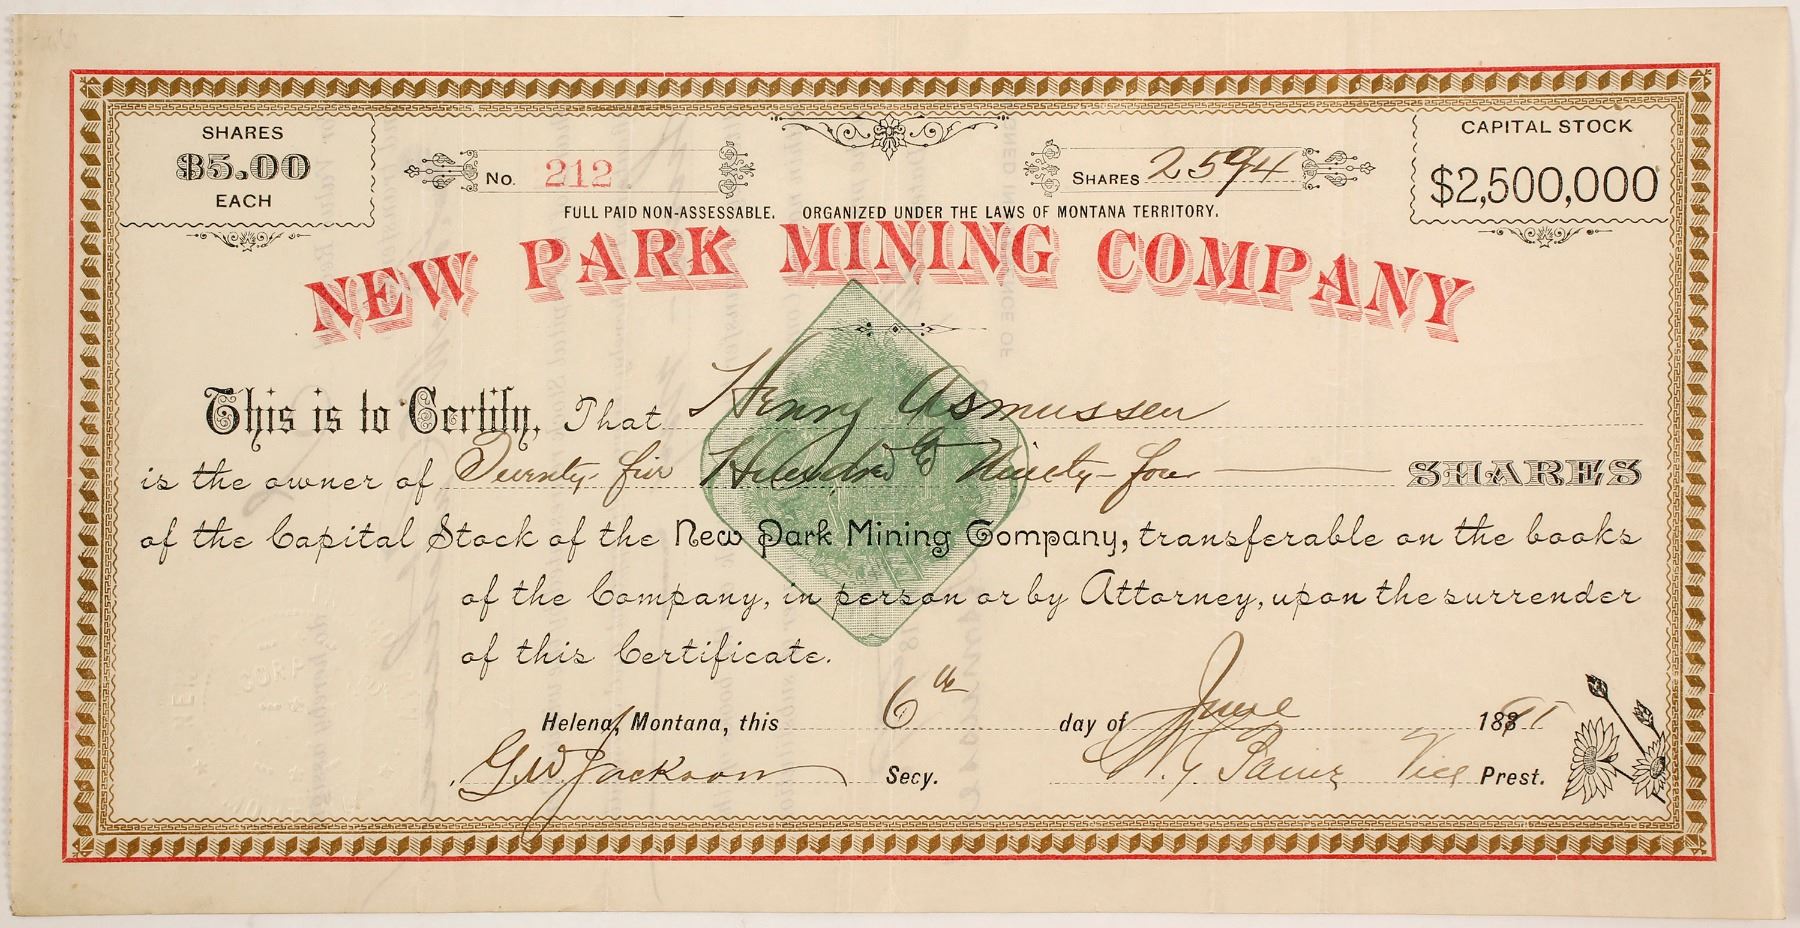 SHARES
$5.00
EACH
No. 212
SHARES 2594
CAPITAL STOCK
$2,500,000
FULL PAID NON-ASSESSABLE. ORGANIZED UNDER THE LAWS OF MONTANA TERRITORY.
NEW PARK MINING COMPANY
This is to Certify, That Henry Asmussen
is the owner of Twenty-five Hundred & Ninety-four SHARES
of the Capital Stock of the New Park Mining Company, transferable on the books
of the Company, in person or by Attorney, upon the surrender
of this Certificate.
Helena, Montana, this 6th day of June 188
G W Jackson Secy. Vice Prest.